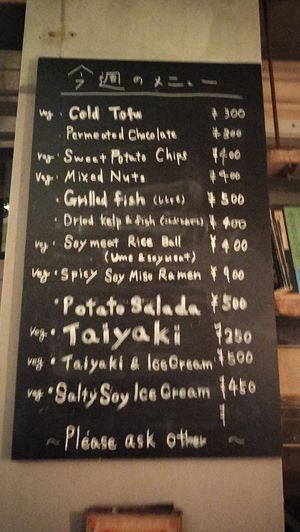 今週のメニュー
veg. Cold Tofu ¥300
Permented Chocolate ¥300
veg. Sweet Potato Chips ¥400
veg. Mixed Nuts ¥400
・Grilled fish ¥500
・Dried kelp & fish ¥400
veg. Soymeat Rice Ball ¥400
(Ume & soymeat)
veg. ・Spicy Soy Miso Ramen ¥900
・Potato Salada ¥500
veg. ・Taiyaki ¥250
veg. ・Taiyaki & Ice Cream ¥500
veg. ・Salty Soy Ice Cream ¥450
~ Please ask other ~